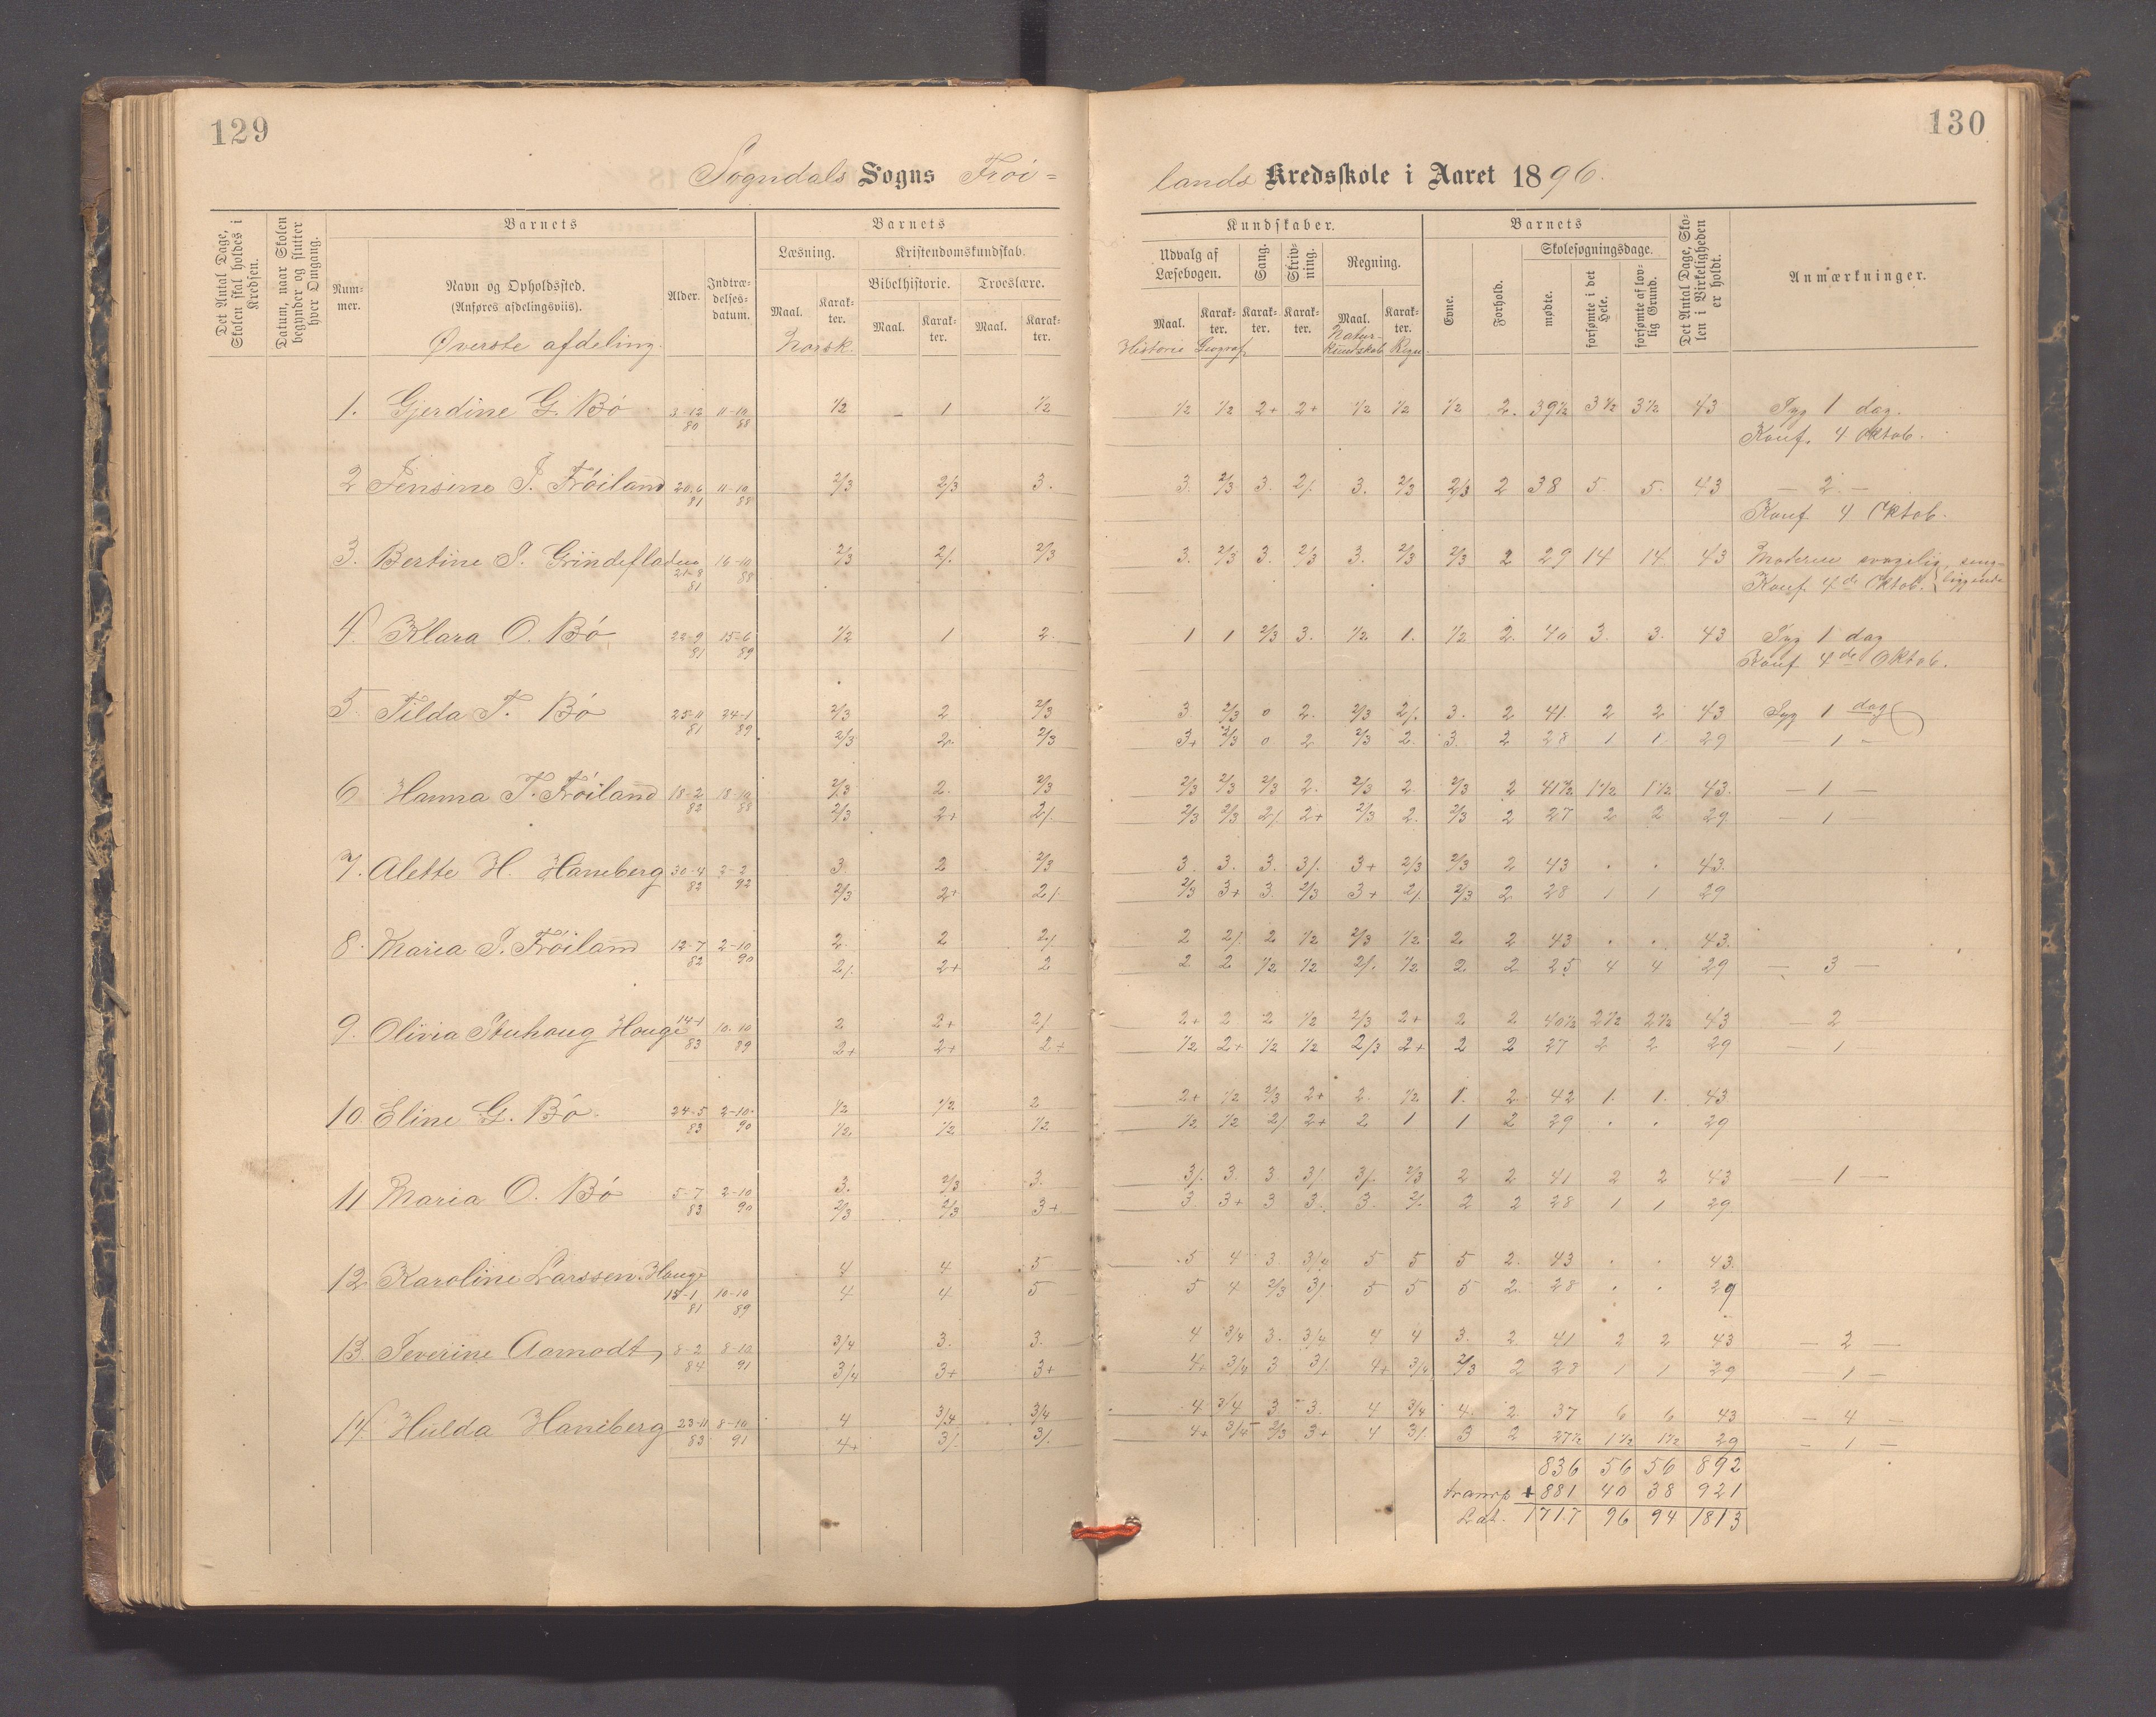 129
130
Sogndals Sogns Frøi=
lands Kredsskole i Aaret 1896.
Det Antal Dage, Skolen skal holdes i Kredsen.
Datum, naar Skolen begynder og slutter hver Omgang.
Barnets
Nummer.
Navn og Opholdssted.
(Anføres afdelingsviis).
Alder.
Indtrædelsesdatum.
Barnets
Læsning.
Kristendomskundskab.
Bibelhistorie.
Troeslære.
Maal. Karakter. Maal. Karakter. Maal. Karakter.
Kundskaber.
Udvalg af Læsebogen.
Sang.
Skrivning.
Regning.
Maal. Karakter. Karakter. Karakter. Maal. Karakter.
Barnets
Evne.
Forhold.
Skolesøgningsdage.
mødte.
forsømte i det Hele.
forsømte af lovlig Grund.
Det Antal Dage, Skolen i Virkeligheden er holdt.
Anmærkninger.
Øverste afdeling. Norsk. Historie Geograf. Naturkundskab Regn.
1. Gjerdine G. Bø 3-12 80 11-10 88 1/2 1 1/2 1/2 1/2 2+ 2+ 1/2 1/2 1/2 2. 39 1/2 3 1/2 3 1/2 43 Syg 1 dag.
Konf. 4 Oktob.
2 Jensine J. Frøiland 20-6 81 11-10 88 2/3 2/3 3. 3. 2/3 3. 2/. 3. 2/3 2/3 2 38 5 5. 43 — 2 —
Konf. 4 Oktob.
3. Bertine S. Grindefladen 21-8 81 16-10 88 2/3 2/. 2/3 3. 2/3 3. 2/3 3. 2/3 2/3 2 29 14 14. 43 Moderen svagelig, sengliggende
Konf. 4de Oktob.
4. Klara O. Bø 22-9 81 15-6 89 1/2 1 2. 1 1 2/3 3. 1/2 1. 1/2 2. 40 3. 3. 43 Syg 1 dag
Konf. 4de Oktob.
5. Tilda T. Bø 25-11 81 24-1 89 2/3 2 2/3 3 2/3 0 2. 2/3 2/. 3. 2 41. 2 2 43 Syg 1 dag
2/3 2. 2/3 3+ 2/3 0 2 2/3 2. 3. 2 28 1 1 29 — 1 —
6 Hanna T. Frøiland 18-2 82 18-10 88 2/3 2. 2/3 2/3 2/3 2/3 2. 2/3 2. 2/3 2 41 1/2 1 1/2 1 1/2 43. — 1 —
2/3 2+ 2/. 2/3 2/3 2/. 2+ 2/3 2. 2/3 2 27 2 2 29 — 1 —
7. Alette H. Haneberg 30-4 82 2-2 92 3. 2 2/3 3. 3. 3. 3/. 3+ 2/3 2/3 2 43 . . 43.
2/3 2+ 2/. 2/3 3+ 3. 2/3 3+ 2/. 2/3 2 28 1 1 29
8. Maria S. Frøiland 12-7 82 2-10 90 2. 2 2/. 2 2/. 2 1/2 2/3 1/2 2 2 43 . . 43.
2/. 2+ 2 2. 2 1/2 1/2 2/. 1/2 2 2 25 4 4 29 — 3 —
9. Olivia Stuhaug Hauge 14-1 83 10-10 89 2 2+ 2/. 2+ 2 2 1/2 2/3 2+ 2 2 40 1/2 2 1/2 2 1/2 43 — 2 —
2+ 2+ 2+ 1/2 2+ 1/2 1/2 2/3 2+ 2 2 27 2 2 29 — 1
10. Eline G. Bø. 24-5 83 2-10 90 1/2 1/2 2 2+ 1/2 2/3 2+ 2. 1/2 1. 2. 42 1. 1. 43
1/2 1/2 1/2 1/2 1/2 2/. 2+ 2 1 1 2 29 . . 29
11 Maria O. Bø 5-7 83 2-10 90 3. 2/3 3. 3/. 3. 3 3/. 3/. 2/3 2 2 41 2 2 43 — 1 —
2/3 2/3 3+ 3 3+ 3 3. 3. 2/. 2 2 28 1 1 29
12. Karoline Larssen Hauge 15-1 81 10-10 89 4 4 5 5 4 3. 3/4 5 5 5 2. 43 . . 43.
4 4 5 5 4 2/3 3/. 5 5 5 2. 28 . . 29
13. Severine Aamodt 8-2 84 8-10 91 3/4 3. 3. 4 3/4 3. 3/4 4 4 3. 2 41 2 2 43 — 2 —
3/4 3+ 3+ 4+ 3/4 3 3/. 4+ 3/4 2/3 2 28 1 1 29 — 1 —
14. Hulda Haneberg 23-11 83 8-10 91 4 3/4 3/4 4 3/4 3 3. 4 3/4 4. 2. 37 6 6 43 — 4 —
4+ 3/. 3/. 4+ 3/4 2/3 3+ 4 3/. 3 2 27 1/2 1 1/2 1 1/2 29 — 1 —
836 56 56 892
transp + 881 40 38 921
Lat. 1717 96 94 1813